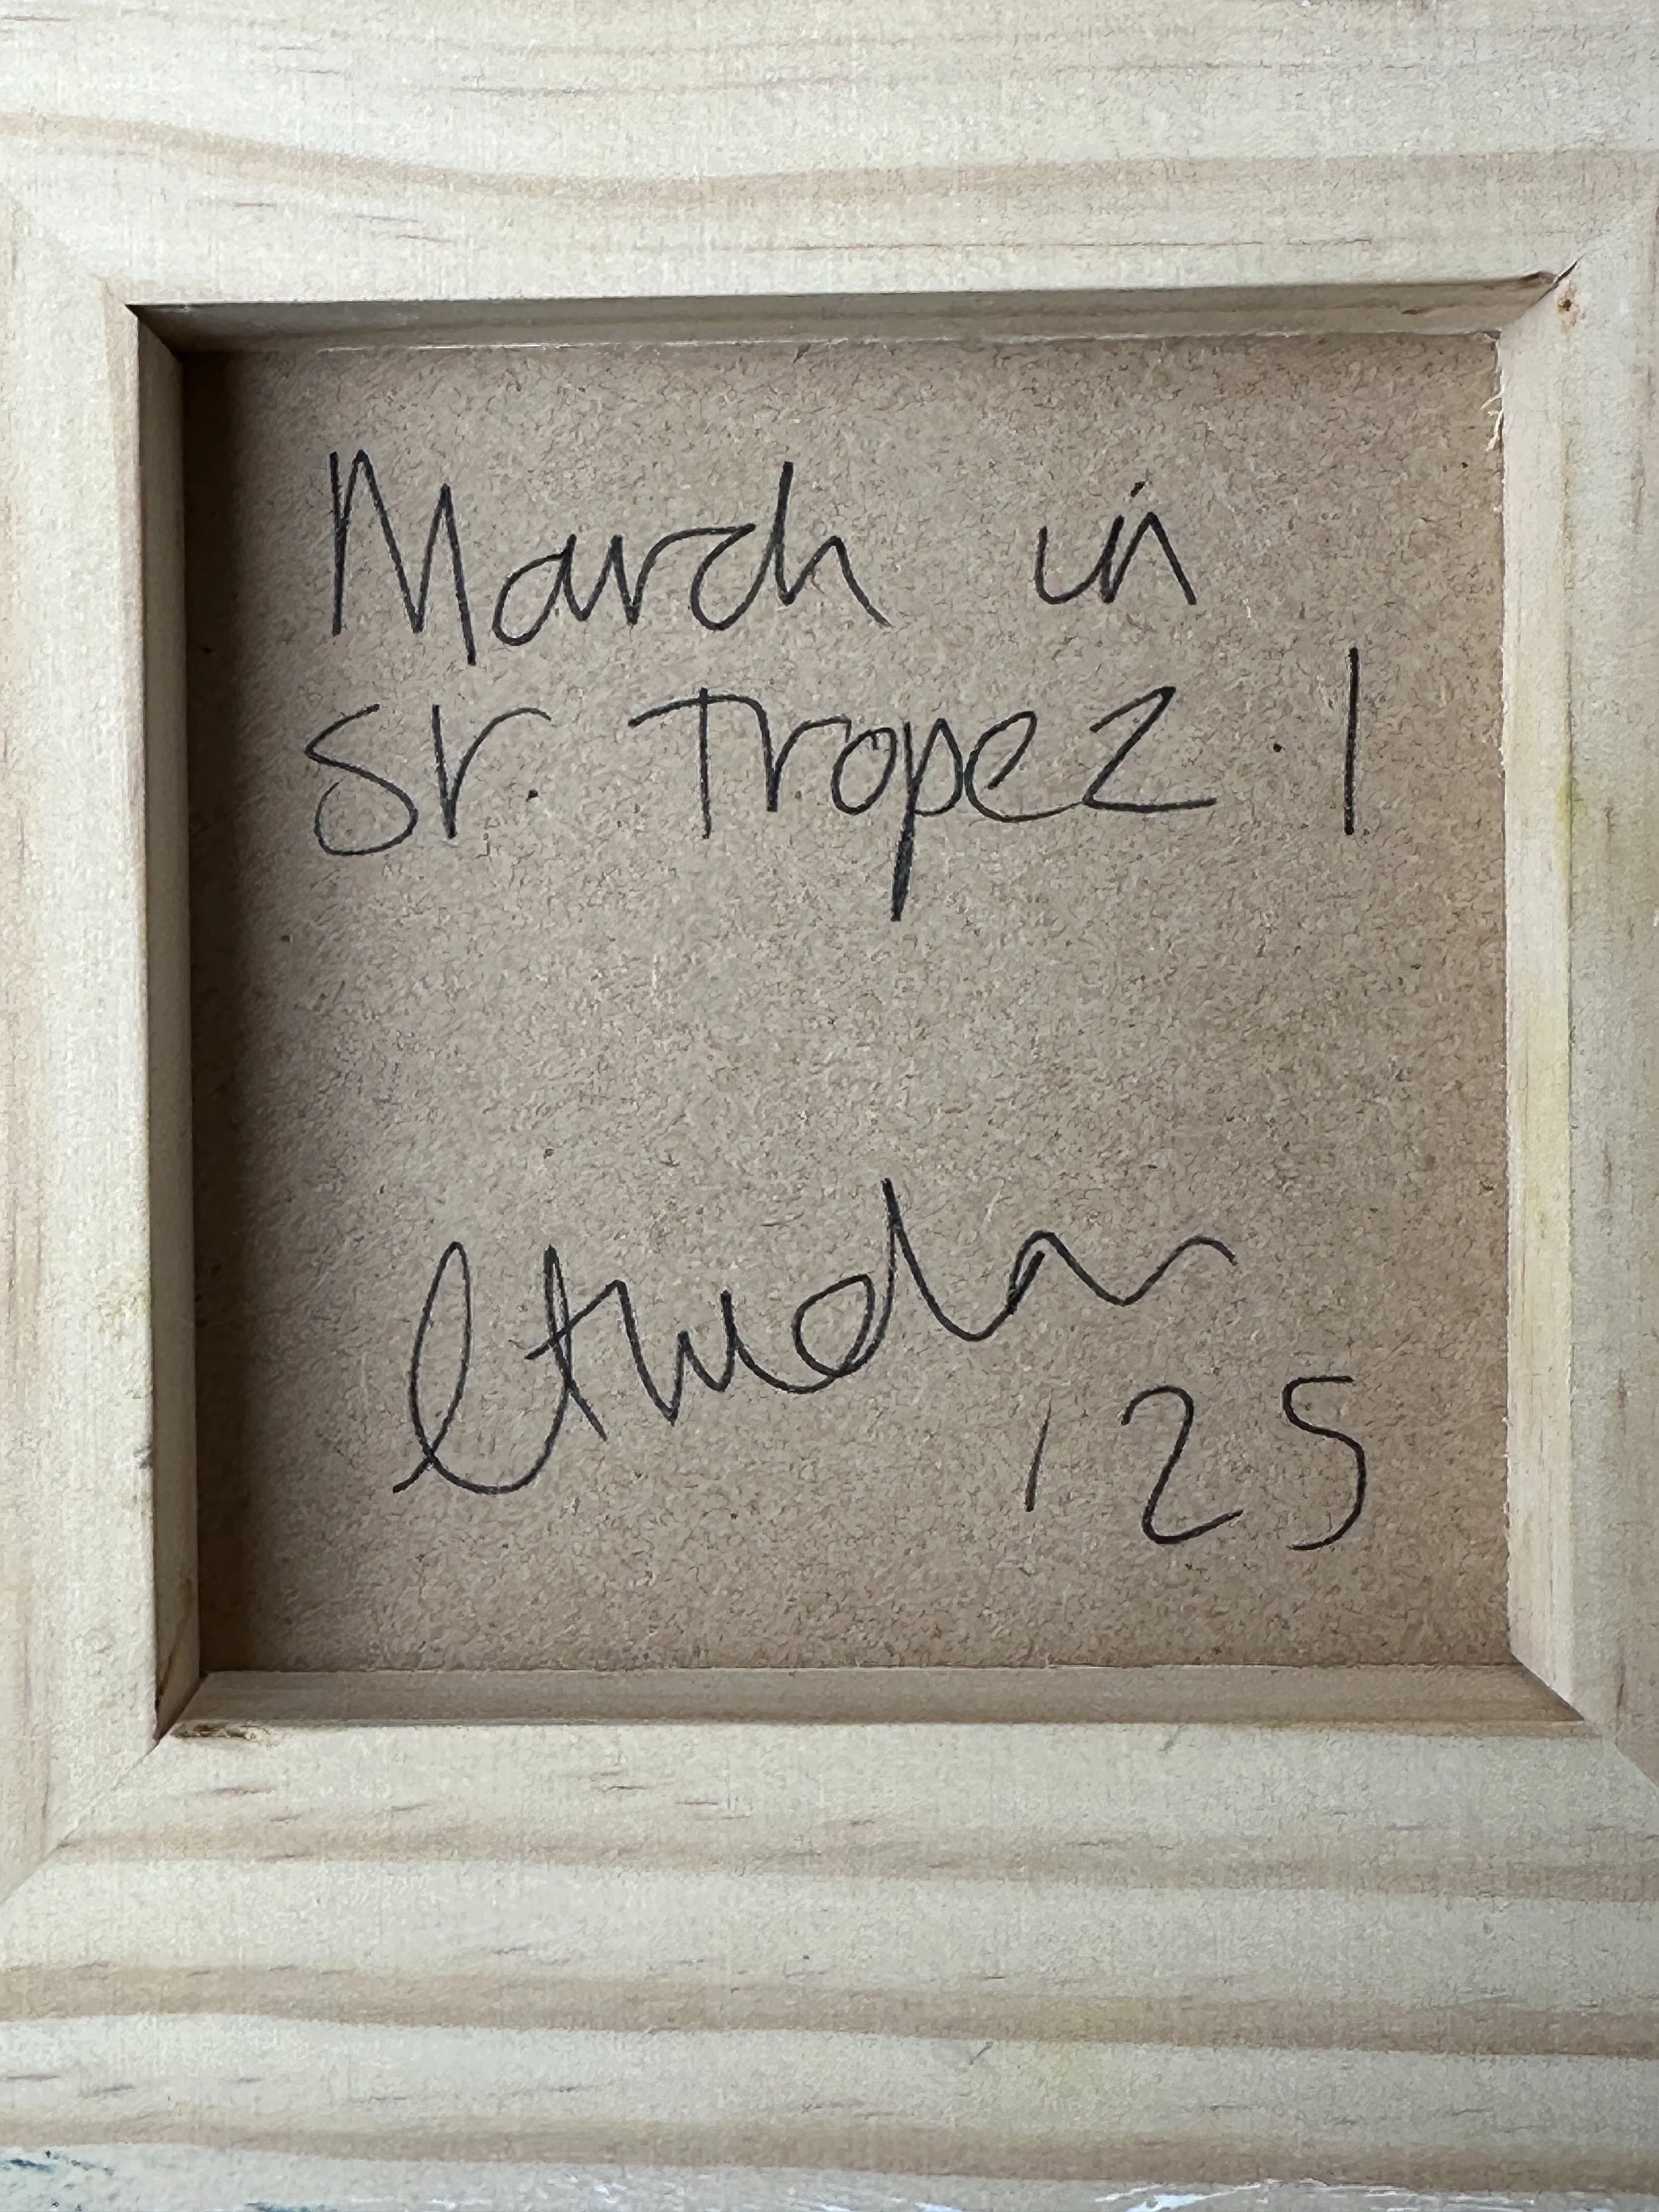 March in
St. Tropez . 1
'25